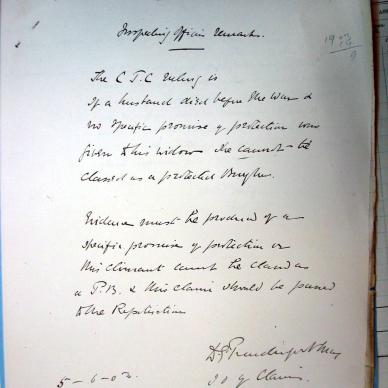 Inspecting Officers remarks.
1903
1914
9
The C.J.C ruling is
If a husband died before the war &
no specific promise of protection was
given to his widow she cannot be
classed as a protected Burgher.
Evidence must be produced of a
specific promise of protection or
this claimant cannot be classed as
a P.B. & this claim should be passed
to the Repatriation
D Prendergast Maj
I O of Claims.
5-6-03.